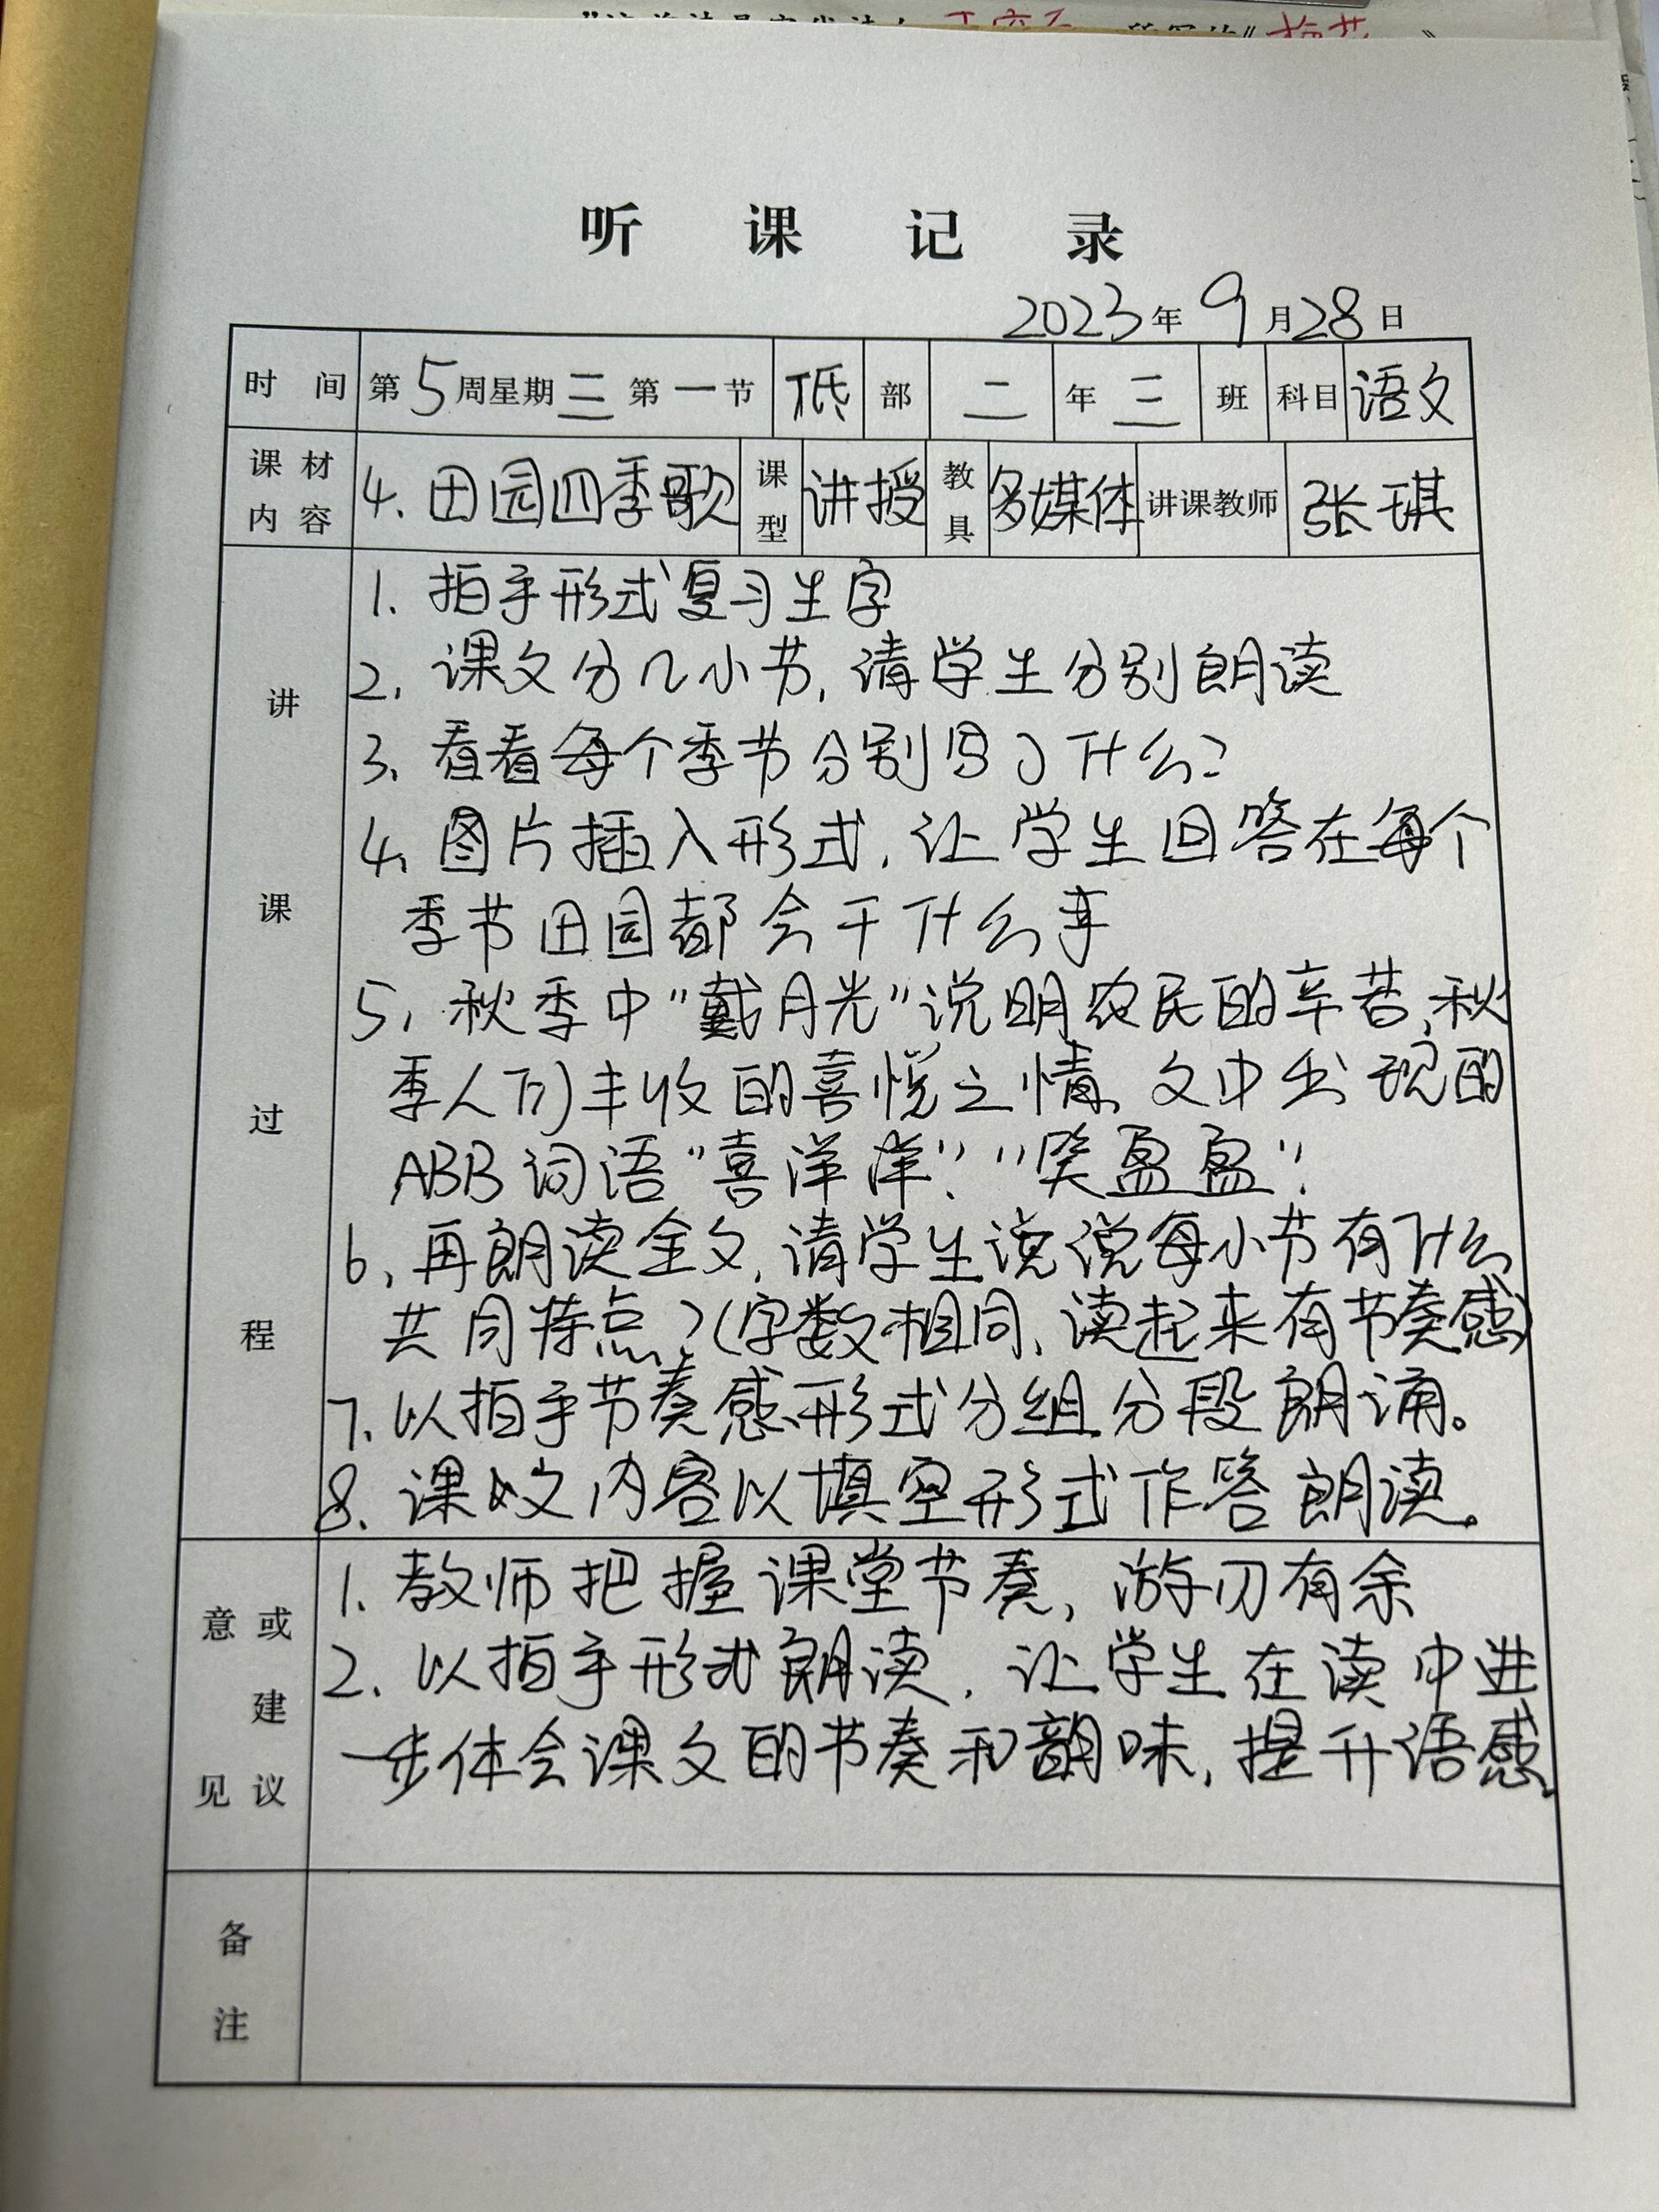 王安石 梅花
听课记录
2023年9月28日
时间 第5周星期三第一节 低 部 二 年 三 班 科目 语文
课材内容 4.田园四季歌 课型 讲授 教具 多媒体 讲课教师 张琪
讲课过程
1. 拍手形式复习生字
2. 课文分几小节,请学生分别朗读
3. 看看每个季节分别写了什么?
4. 图片插入形式,让学生回答在每个
季节田园都会干什么事
5. 秋季中"戴月光"说明农民的辛苦,秋
季人们丰收的喜悦之情、文中出现的
ABB词语"喜洋洋"、"笑盈盈"!
6. 再朗读全文,请学生说说每小节有什么
共同特点?(字数相同、读起来有节奏感)
7. 以拍手节奏感形式分组分段朗诵。
8. 课文内容以填空形式作答朗读。
意见或建议
1. 教师把握课堂节奏,游刃有余
2. 以拍手形式朗读,让学生在读中进
一步体会课文的节奏和韵味,提升语感.
备注